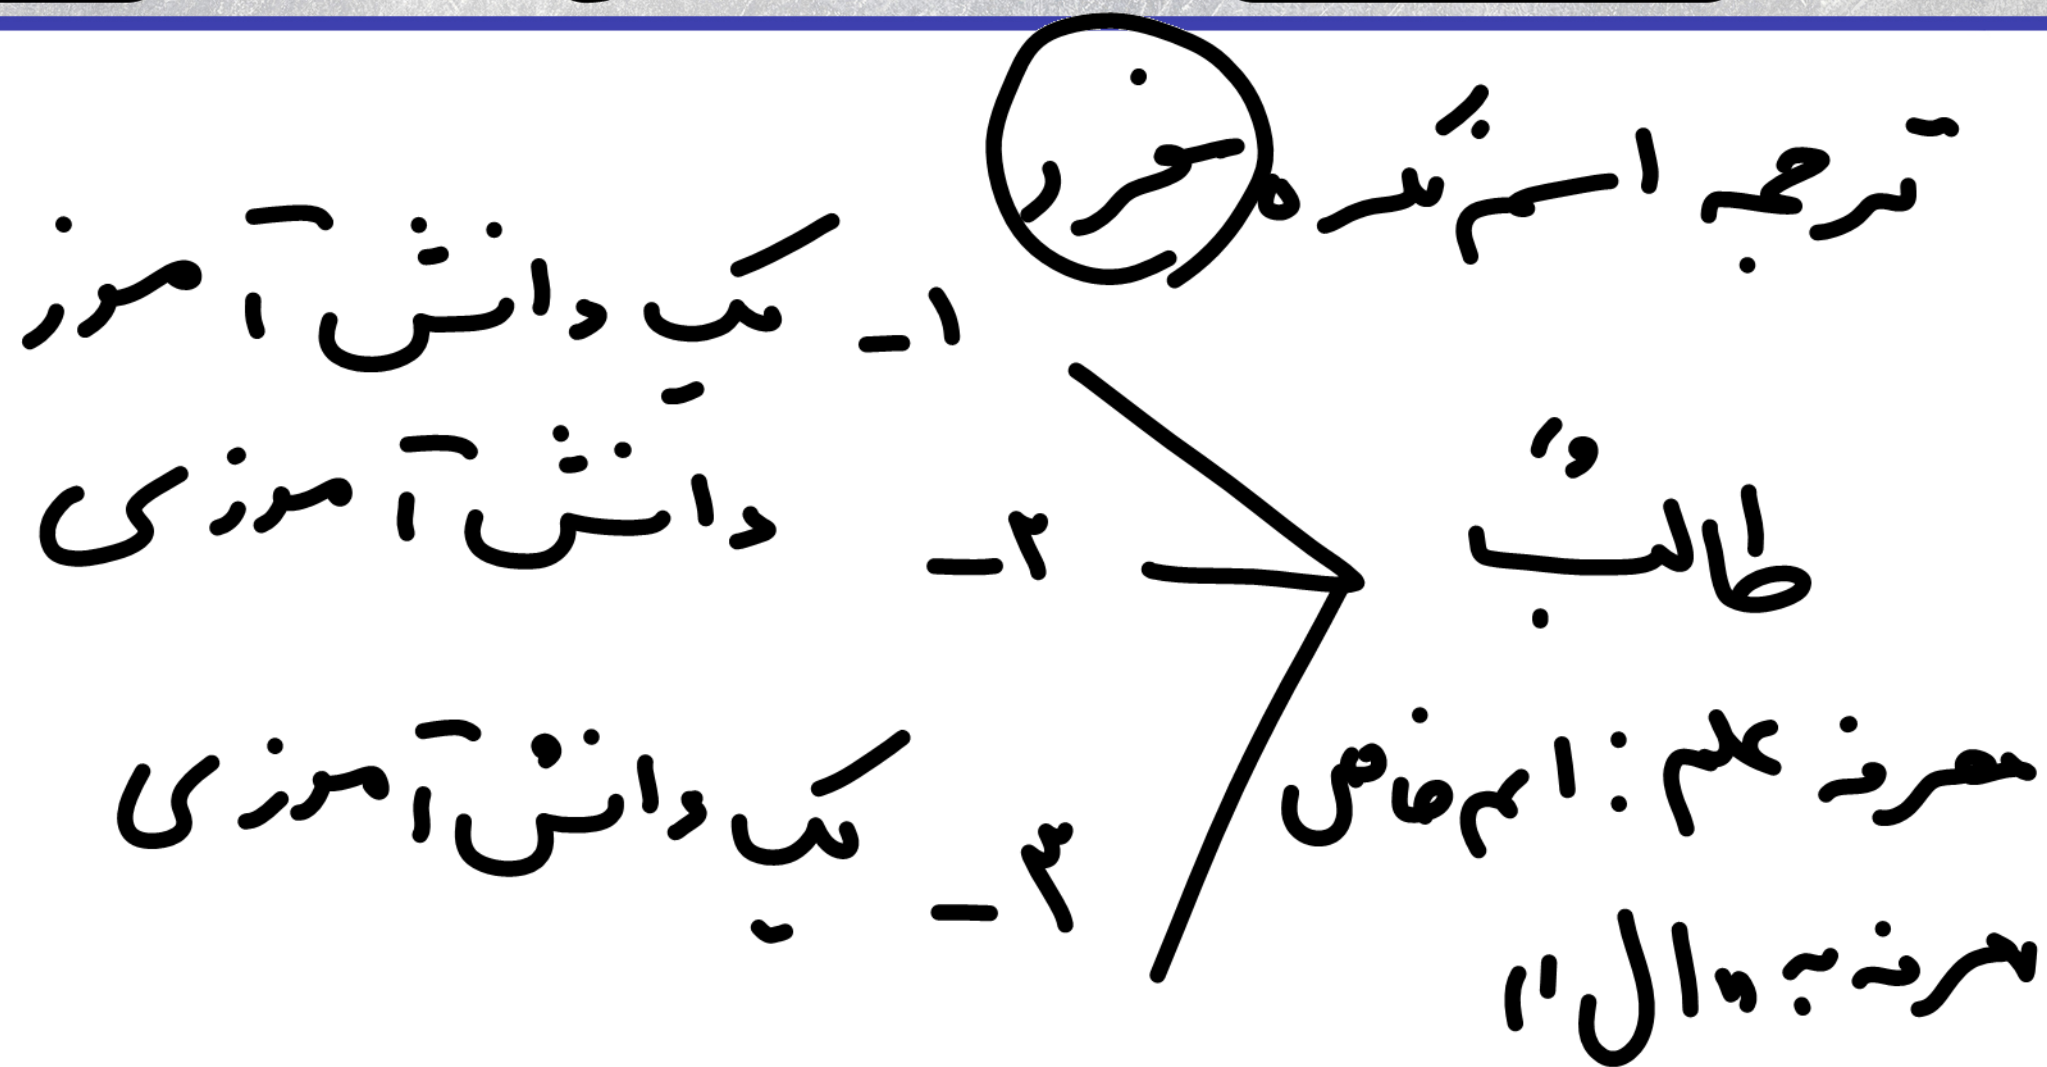 ترجمه اسم نکره مفرد
طالبٌ
۱ـ یک دانش آموز
۲ـ دانش آموزی
۳ـ یک دانش آموزی
معرفه علم : اسم خاص
معرفه به "ال"